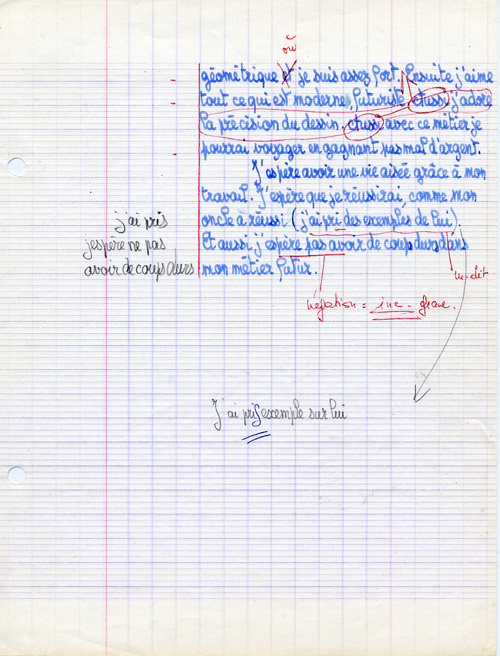 où
géométrique et je suis assez fort. Ensuite j'aime
tout ce qui est moderne, futuriste, et aussi j'adore
la précision du dessin, et aussi avec ce métier je
pourrai voyager en gagnant pas mal d'argent.
J'espère avoir une vie aisée grâce à mon
travail. J'espère que je réussirai, comme mon
oncle à réussi (j'ai pri des exemples de lui).
j'ai pris
Et aussi j'espère pas avoir de coup durs dans
j'espère ne pas
mon métier futur.
avoir de coup durs
négation = inc - grave.
J'ai pris exemple sur lui